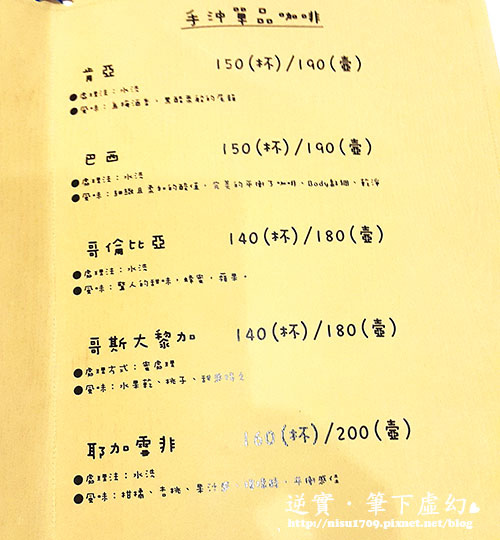 手沖單品咖啡
肯亞 150(杯)/190(壺)
●處理法：水洗
●風味：烏梅酒香，黑醋柔順的尾韻
巴西 150(杯)/190(壺)
●處理法：水洗
●風味：細緻且柔和的酸值，完美的平衡了咖啡、Body 乾淨
哥倫比亞 140(杯)/180(壺)
●處理法：水洗
●風味：堅人的甜味，蜂蜜，蘋果。
哥斯大黎加 140(杯)/180(壺)
●處理方式：蜜處理
●風味：水果乾、桃子、甜
耶加雪非 160(杯)/200(壺)
●處理法：水洗
●風味：柑橘、杏桃、果汁 平衡感佳
逆實·筆下虛幻
http://nisu1709.pixnet.net/blog